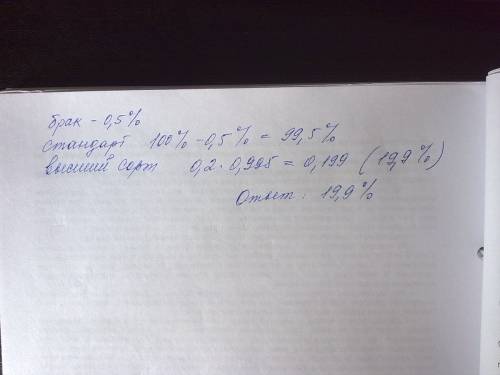 брак - 0,5%
стандарт 100% - 0,5% = 99,5%
высший сорт 0,2 · 0,995 = 0,199 (19,9%)
Ответ: 19,9%